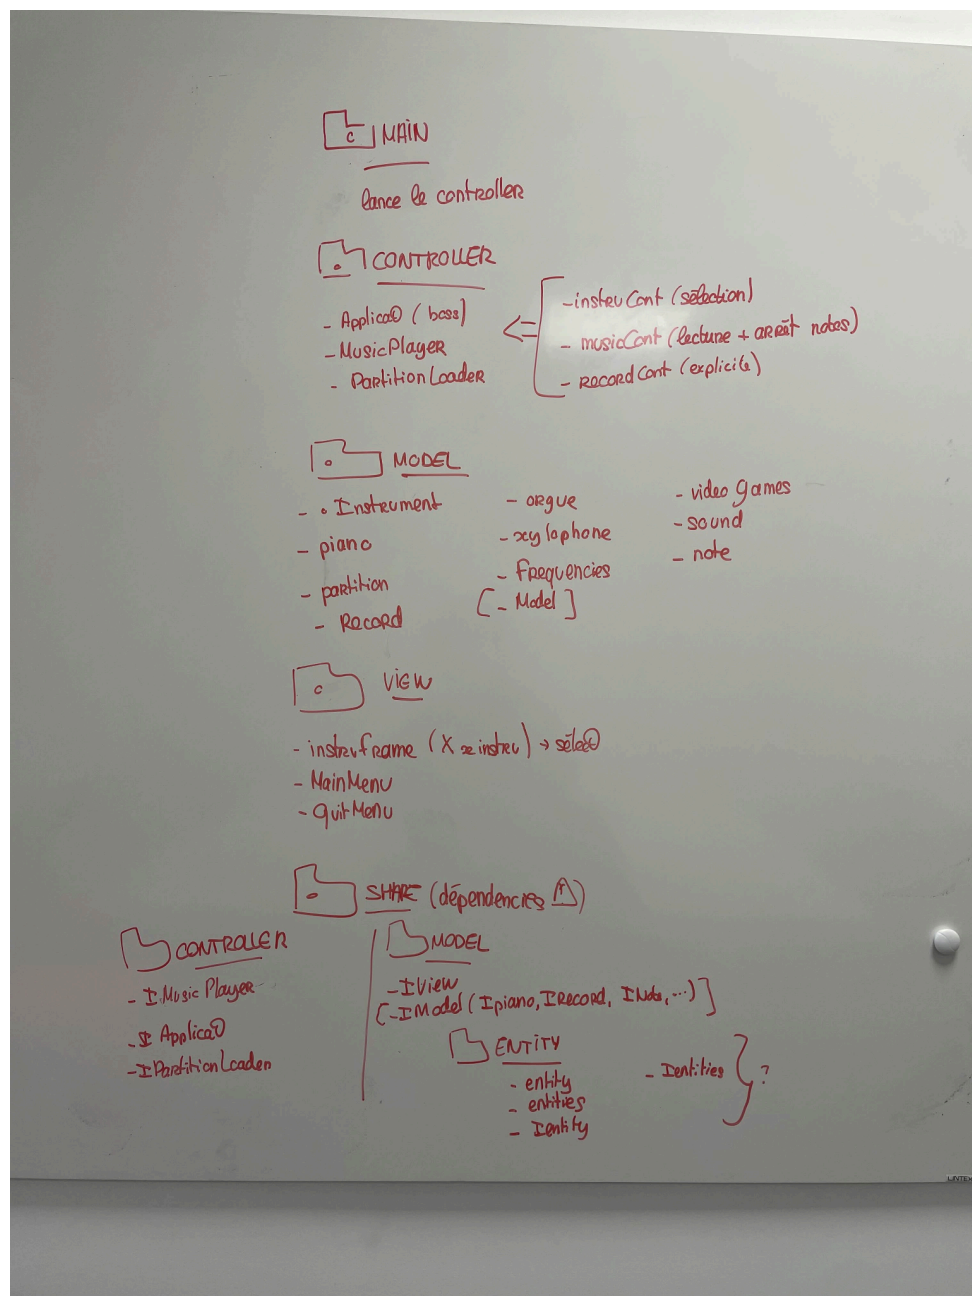 MAIN
lance le controller
CONTROLLER
- Applica⊙ (boss)
- MusicPlayer
- PartitionLoader
- instruCont (sélection)
- musicCont (lecture + arrêt notes)
- RecordCont (explicite)
MODEL
- Instrument
- piano
- partition
- Record
- orgue
- xylophone
- Frequencies
[- Model]
- video Games
- sound
- note
VIEW
- instruframe (X instru) → séle⊙
- MainMenu
- QuitMenu
SHARE (dépendencies)
CONTROLLER
- IMusicPlayer
- IApplica⊙
- IPartitionLoader
MODEL
- IView
[- IModel (Ipiano, IRecord, INote, ...)]
ENTITY
- entity
- entities
- Ientity
- Ientities
?
LINTEX